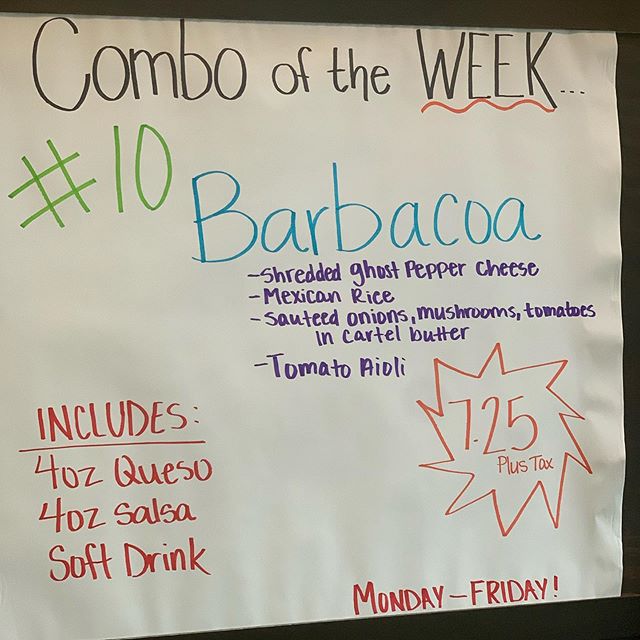 Combo of the WEEK...
#10
Barbacoa
-Shredded ghost Pepper cheese
-Mexican Rice
-Sauteed onions, mushrooms, tomatoes
in cartel butter
-Tomato Aioli
INCLUDES:
4oz Queso
4oz Salsa
Soft Drink
7.25
Plus Tax
MONDAY-FRIDAY!